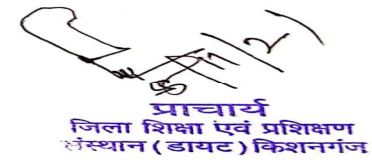 प्राचार्य
जिला शिक्षा एवं प्रशिक्षण
संस्थान (डायट) किशनगंज